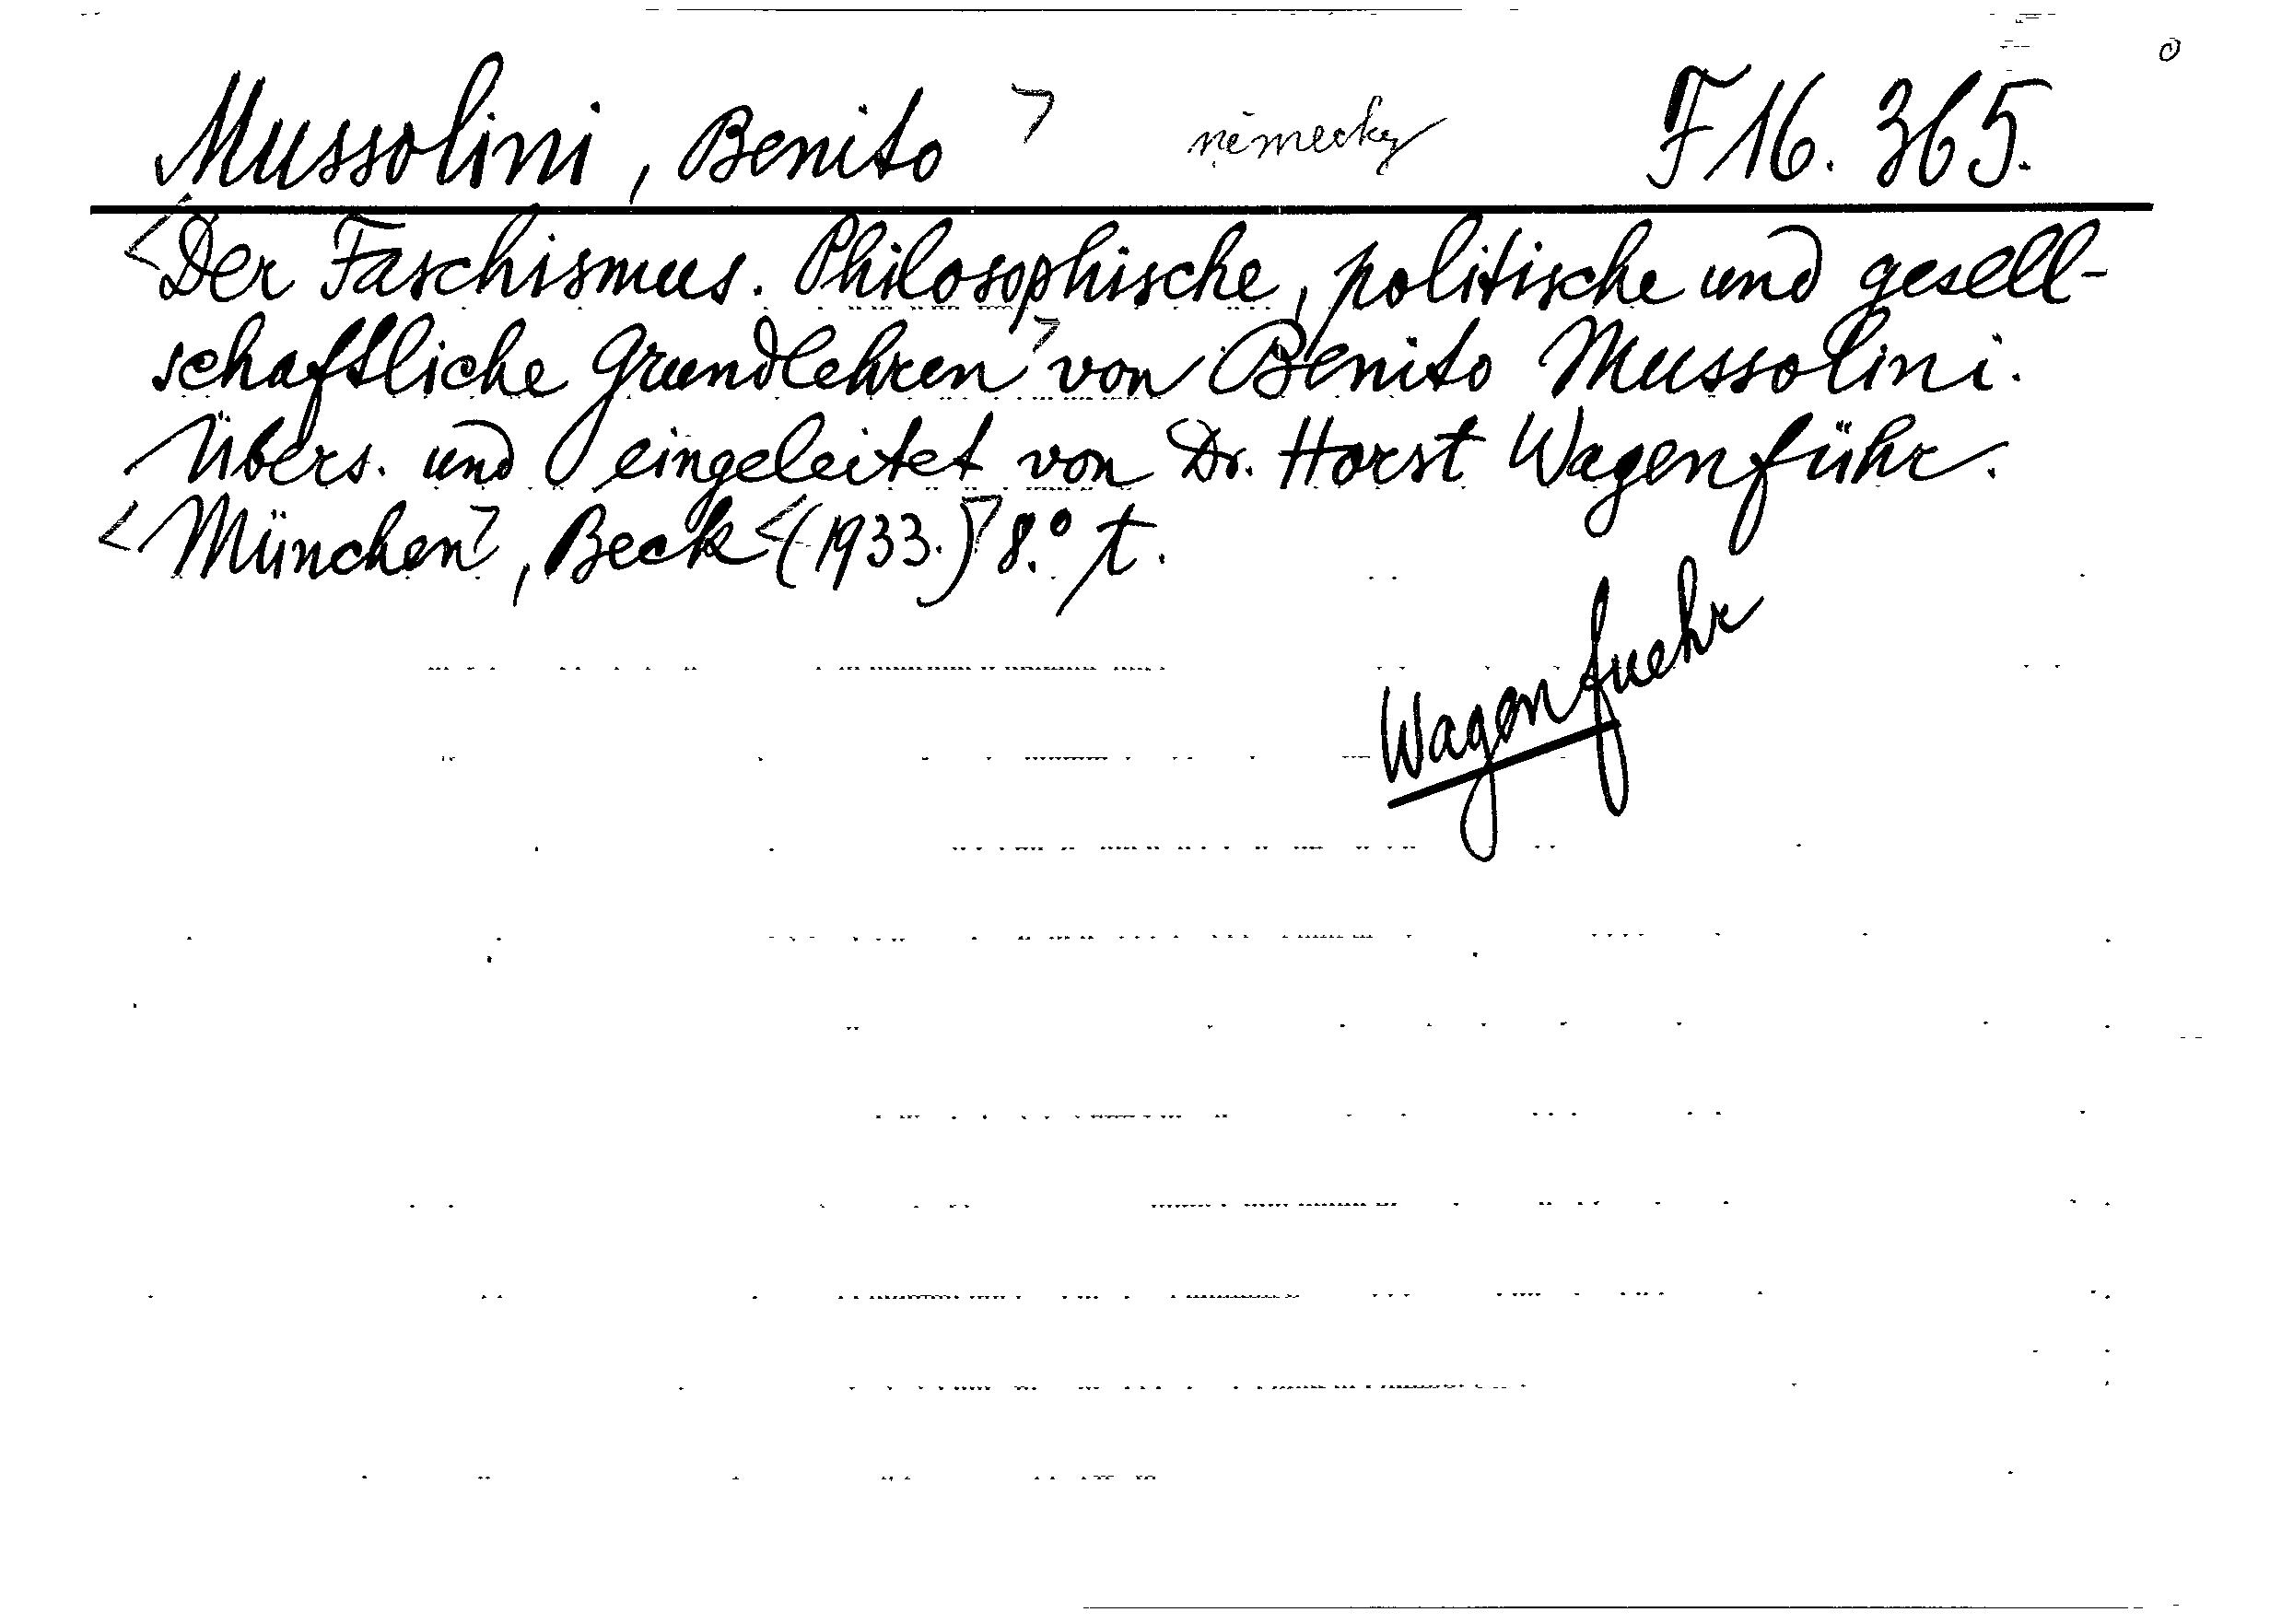 Mussolini, Benito > německy F 16. 365.
<Der Faschismus. Philosophische, politische und gesell-
schaftliche Grundlehren> von Benito Mussolini.
Übers. und eingeleitet von Dr. Horst Wagenführ.
<München>, Beck <(1933.)> 8.° t.
Wagenfuehr